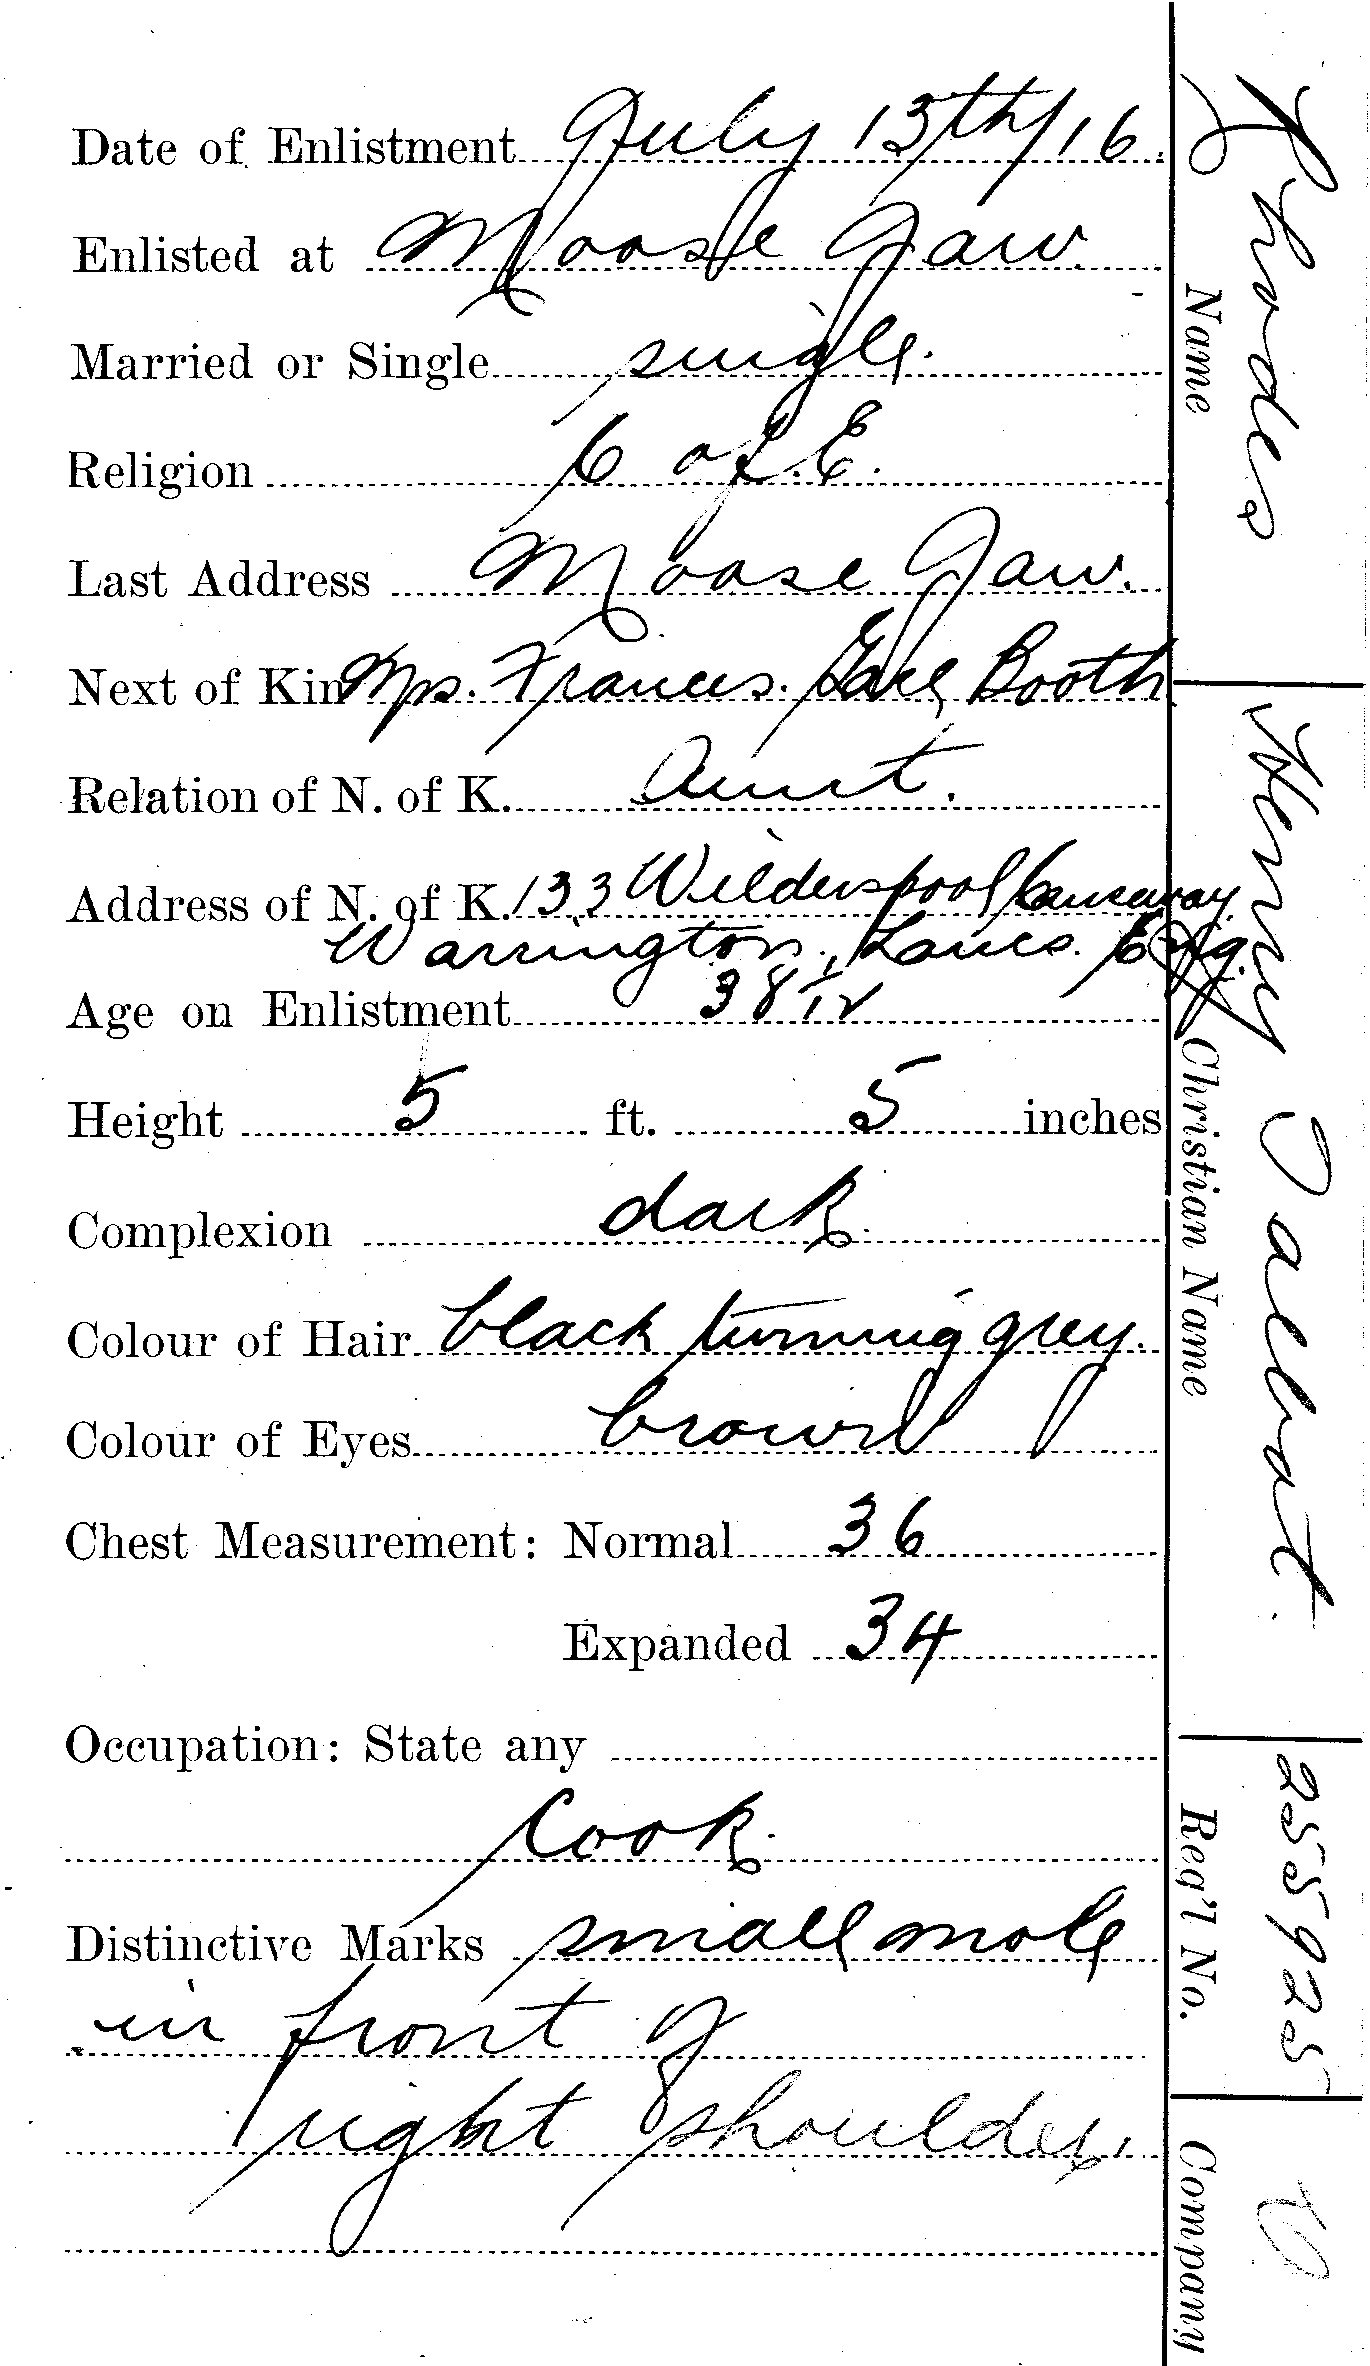 Date of Enlistment July 13th/16.
Enlisted at Moose Jaw.
Married or Single single.
Religion C of. E.
Last Address Moose Jaw.
Next of Kin Mrs. Frances. Booth
Relation of N. of K. Aunt.
Address of N. of K. 133 Wilderspool Causeway.
Warrington, Lancs. Eng.
Age on Enlistment 38
Height 5 ft. 5 inches
Complexion dark.
Colour of Hair black turning grey.
Colour of Eyes brown
Chest Measurement: Normal 36
Expanded 34
Occupation: State any
Cook.
Distinctive Marks small mole
in front of
right shoulder.
Rhodes
Name
Henry Talbot.
Christian Name
255925
Reg'l No.
Company